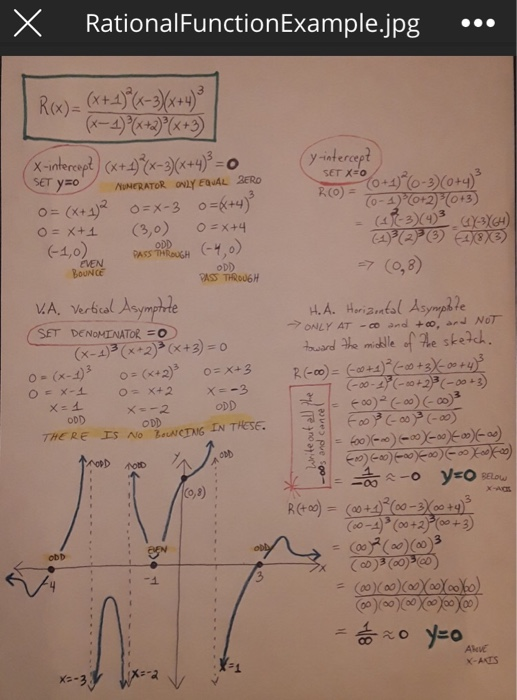 RationalFunctionExample.jpg
R(x) = (x+1)²(x-3)(x+4)³ / (x-1)³(x+2)³(x+3)
x-intercept (x+1)²(x-3)(x+4)³ = 0
SET y=0 NUMERATOR ONLY EQUAL ZERO
0 = (x+1)² 0 = x-3 0 = (x+4)³
0 = x+1 (3,0) 0 = x+4
(-1,0) ODD (-4,0)
EVEN PASS THROUGH ODD
BOUNCE PASS THROUGH
y-intercept
SET x=0
R(0) = (0+1)²(0-3)(0+4)³ / (0-1)³(0+2)³(0+3)
= (1)²(-3)(4)³ / (-1)³(2)³(3) = (1)(-3)(64) / (-1)(8)(3)
=> (0,8)
V.A. Vertical Asymptote
SET DENOMINATOR = 0
(x-1)³(x+2)³(x+3) = 0
0 = (x-1)³ 0 = (x+2)³ 0 = x+3
0 = x-1 0 = x+2 x = -3
x = 1 x = -2 ODD
ODD ODD
THERE IS NO BOUNCING IN THESE.
H.A. Horizontal Asymptote
→ ONLY AT -∞ and +∞, and NOT
toward the middle of the sketch.
R(-∞) = (-∞+1)²(-∞+3)(-∞+4)³ / (-∞-1)³(-∞+2)³(-∞+3)
= (-∞)²(-∞)(-∞)³ / (-∞)³(-∞)³(-∞)
= (-∞)(-∞)(-∞)(-∞)(-∞)(-∞) / (-∞)(-∞)(-∞)(-∞)(-∞)(-∞)(-∞)
= 1/-∞ ≈ -0 y=0 BELOW
X-AXIS
Write out all the
-∞s and cancel
R(+∞) = (∞+1)²(∞-3)(∞+4)³ / (∞-1)³(∞+2)³(∞+3)
= (∞)²(∞)(∞)³ / (∞)³(∞)³(∞)
= (∞)(∞)(∞)(∞)(∞)(∞) / (∞)(∞)(∞)(∞)(∞)(∞)(∞)
= 1/∞ ≈ 0 y=0
ABOVE
X-AXIS
ODD ODD y ODD
(0,8)
ODD EVEN ODD
-4 -1 3 x
x=-3 x=-2 x=1